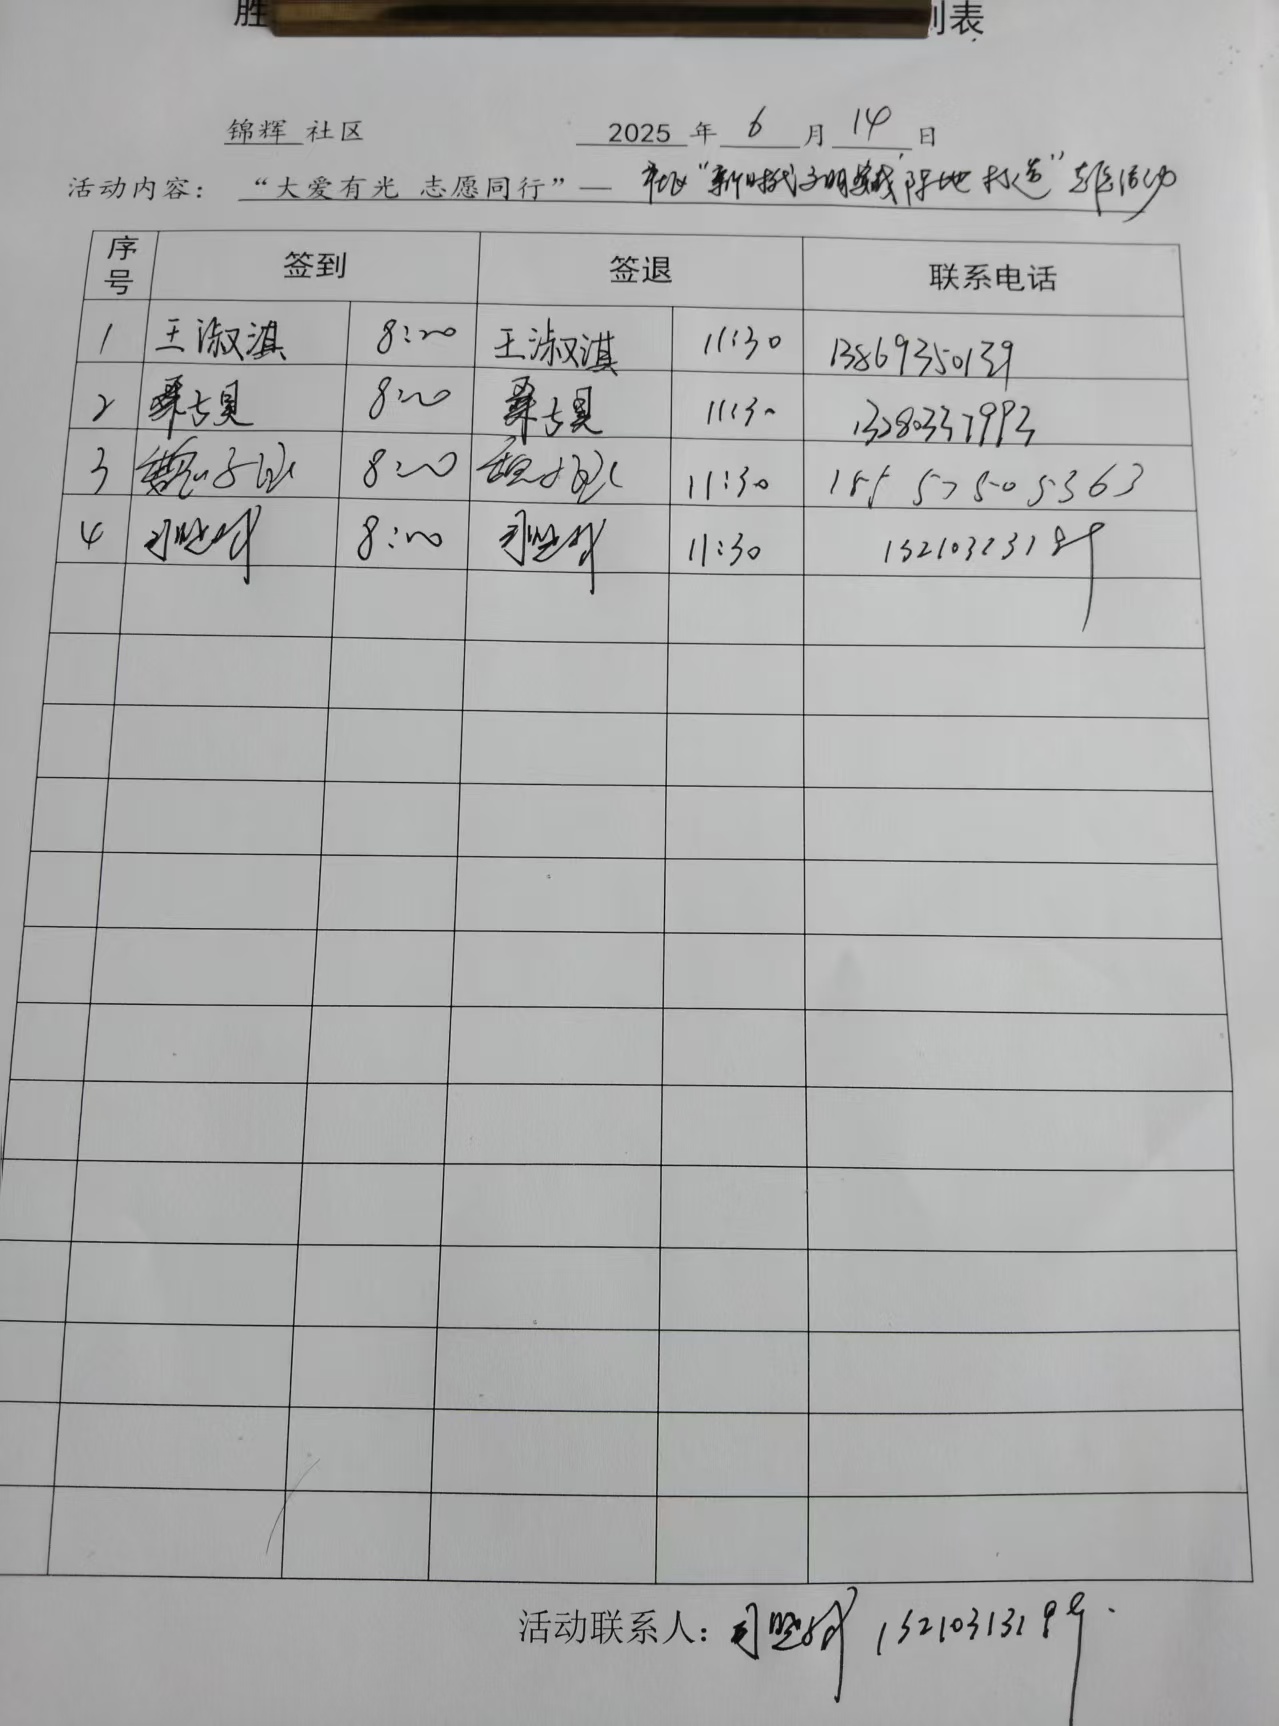 胜 列表
锦辉 社区 2025 年 6 月 14 日
活动内容：“大爱有光 志愿同行”— 社区“新时代文明实践阵地打造”志愿活动
序号 签到 签退 联系电话
1 王淑淇 8:20 王淑淇 11:30 13869350139
2 8:20 11:30 13280337993
3 8:20 11:30 15557505363
4 8:20 11:30
活动联系人：